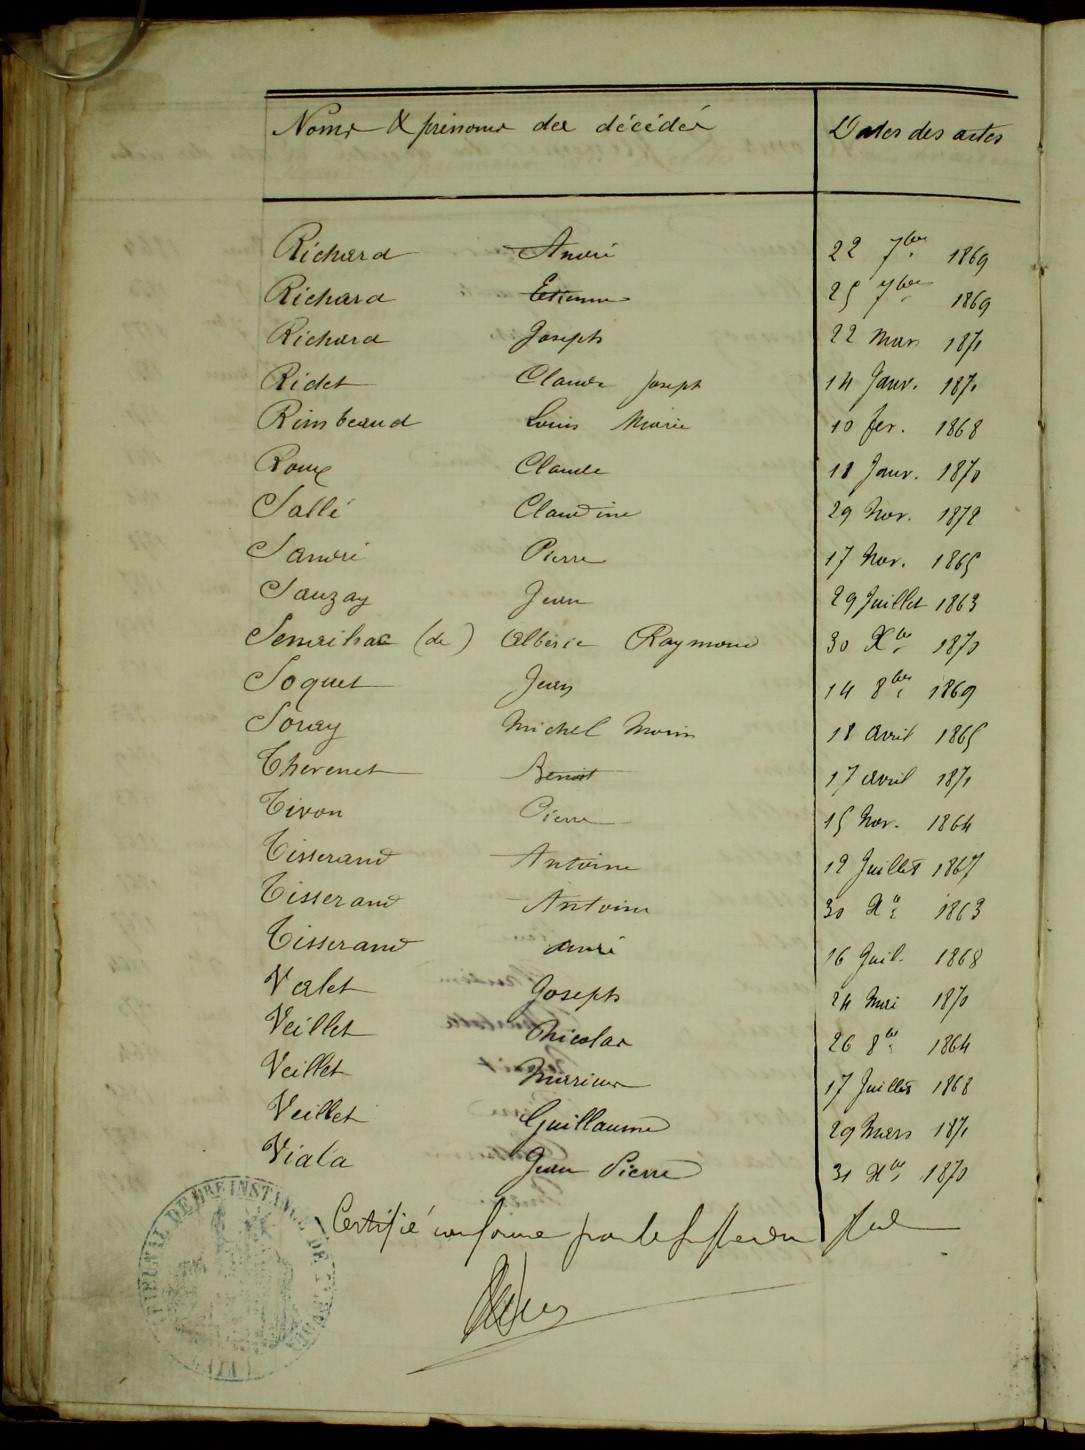 Noms & prénoms des décédés Dates des actes
Richard André 22 7bre 1869
Richard Etienne 25 7bre 1869
Richard Joseph 22 Mars 1871
Ridet Claude Joseph 14 Janv. 1871
Rimbeaud Louis Marie 10 fev. 1868
Roux Claude 18 Janv. 1870
Sallé Claudine 29 Nov. 1872
Sandré Pierre 17 Nov. 1865
Sauzay Jean 29 Juillet 1863
(de) Albéric Raymond 30 Xbre 1870
Soquet Jean 14 8bre 1869
Soray Michel 18 avril 1865
Thevenet Benoit 17 avril 1871
Tivon Pierre 15 Nov. 1864
Tisserand Antoine 12 Juillet 1867
Tisserand Antoine 30 Xre 1863
Tisserand André 16 Juil. 1868
Valet Joseph 24 Mai 1870
Veillet Nicolas 26 8bre 1864
Veillet Marieur 17 Juillet 1868
Veillet Guillaume 29 Mars 1871
Viala Jean Pierre 31 Xbre 1870
Certifié conforme par le
TRIBUNAL DE PREINSTANCE DE